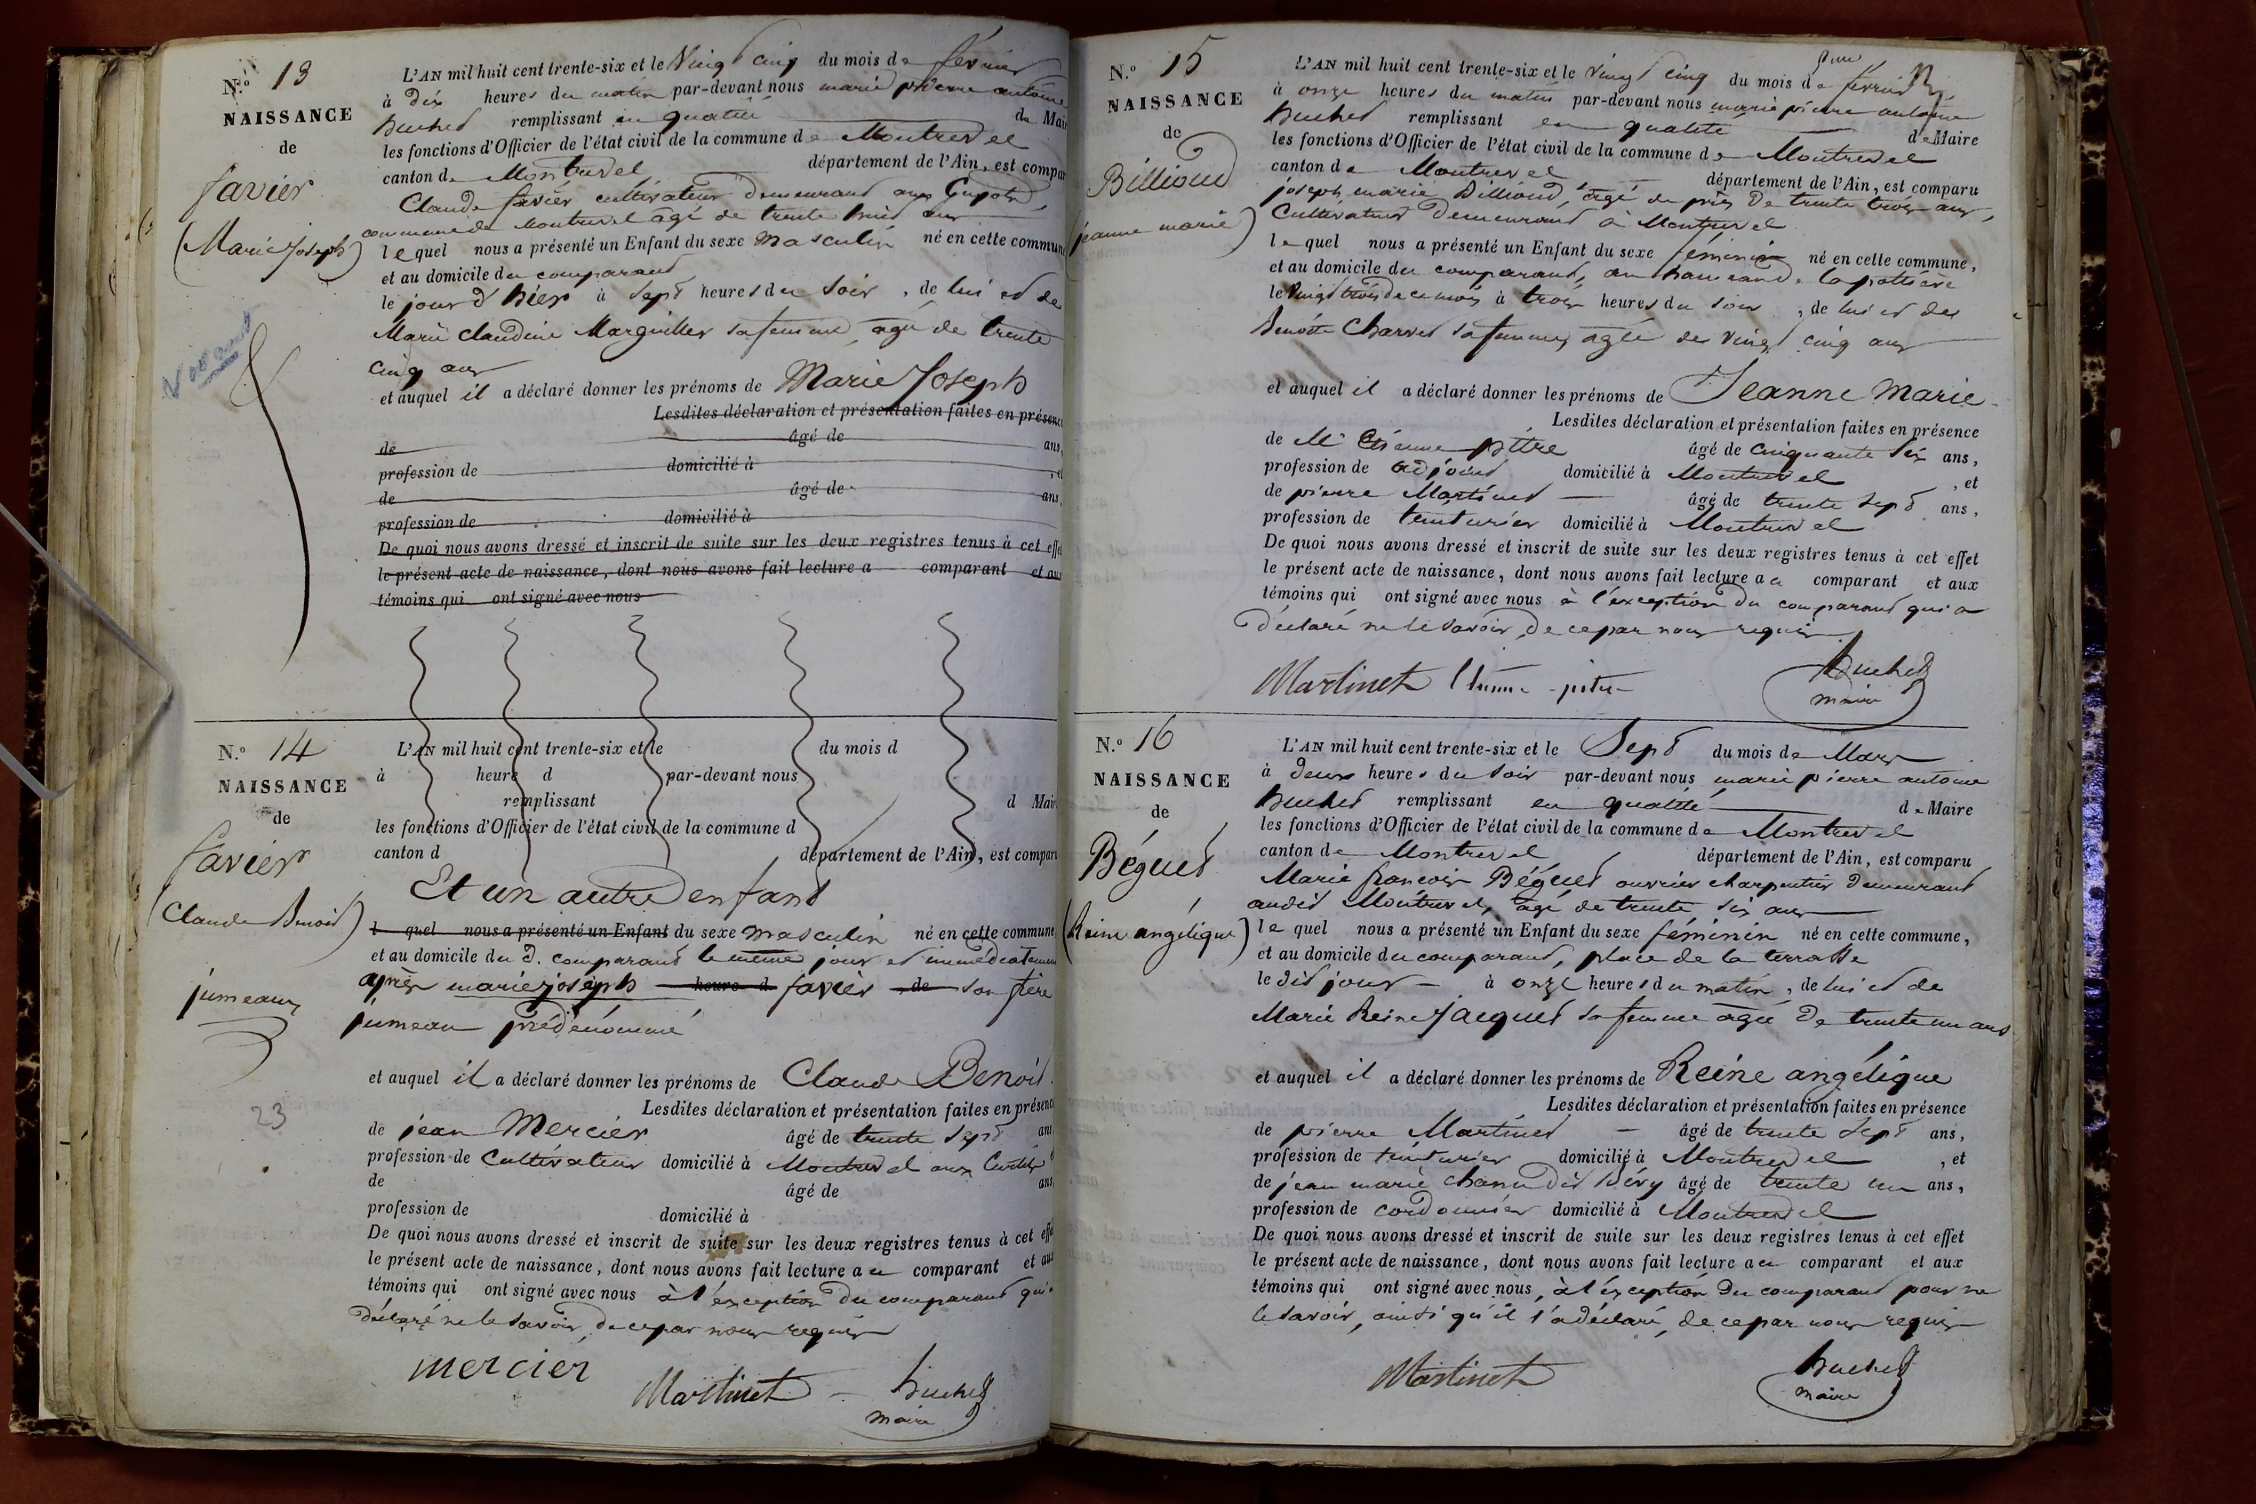 N.º 13
NAISSANCE
de
favier
(Marie Joseph)
L'AN mil huit cent trente-six et le Vingt cinq du mois de février
à dix heures du matin par-devant nous marie pierre antoine
huchet remplissant en qualité de Mai
les fonctions d'Officier de l'état civil de la commune de Montrevel
canton de Montrevel département de l'Ain, est compar
Claude favier cultivateur demeurant aux
commune de Montrevel agé de trente huit ans
lequel nous a présenté un Enfant du sexe masculin né en cette commun
et au domicile du comparant
le jour d'hier à sept heures du soir, de lui et de
Marie Claudine Marguiller sa femme, agée de trente
cinq ans
et auquel il a déclaré donner les prénoms de Marie Joseph
Lesdites déclaration et présentation faites en présenc
de âgé de ans,
profession de domicilié à , et
de âgé de ans,
profession de domicilié à
De quoi nous avons dressé et inscrit de suite sur les deux registres tenus à cet effet
le présent acte de naissance, dont nous avons fait lecture a comparant et aux
témoins qui ont signé avec nous
N.º 14
NAISSANCE
de
favier
(Claude Benoit)
jumeaux
23
L'AN mil huit cent trente-six et le du mois d
à heure d par-devant nous
remplissant d Mair
les fonctions d'Officier de l'état civil de la commune d
canton d département de l'Ain, est comparu
Et un autre enfant
l quel nous a présenté un Enfant du sexe masculin né en cette commune
et au domicile du d. comparant le même jour et immédiatement
après marie joseph heure d favier de son frère
jumeau prédénommé
et auquel il a déclaré donner les prénoms de Claude Benoit
Lesdites déclaration et présentation faites en présence
de jean Mercier âgé de trente sept ans
profession de Cultivateur domicilié à Montrevel aux
de âgé de ans,
profession de domicilié à
De quoi nous avons dressé et inscrit de suite sur les deux registres tenus à cet effe
le présent acte de naissance, dont nous avons fait lecture au comparant et aux
témoins qui ont signé avec nous à l'exception du comparant qui a
déclaré ne le savoir, de ce par nous requis
mercier
Martinet huchet
maire
N.º 15
NAISSANCE
de
Billioud
(jeanne marie)
L'AN mil huit cent trente-six et le vingt cinq du mois de février
à onze heures du matin par-devant nous marie pierre antoine
huchet remplissant en qualité de Maire
les fonctions d'Officier de l'état civil de la commune de Montrevel
canton de Montrevel département de l'Ain, est comparu
joseph marie Billioud, agé de près de trente trois ans,
Cultivateur demeurant à Montrevel
lequel nous a présenté un Enfant du sexe féminin né en cette commune,
et au domicile du comparant, au hameau de
le Vingt trois de ce mois à trois heures du soir, de lui et de
Benoite Charvet sa femme, agée de vingt cinq ans
et auquel il a déclaré donner les prénoms de Jeanne Marie
Lesdites déclaration et présentation faites en présence
de Mr Etienne pitre âgé de cinquante six ans,
profession de adjoint domicilié à Montrevel , et
de pierre Martinet âgé de trente sept ans,
profession de teinturier domicilié à Montrevel
De quoi nous avons dressé et inscrit de suite sur les deux registres tenus à cet effet
le présent acte de naissance, dont nous avons fait lecture au comparant et aux
témoins qui ont signé avec nous à l'exception du comparant qui a
déclaré ne le savoir, de ce par nous requis
Martinet Etienne pitre huchet
maire
N.º 16
NAISSANCE
de
Béguet
(Reine angélique)
L'AN mil huit cent trente-six et le Sept du mois de Mars
à deux heures du soir par-devant nous marie pierre antoine
huchet remplissant en qualité de Maire
les fonctions d'Officier de l'état civil de la commune de Montrevel
canton de Montrevel département de l'Ain, est comparu
Marie françois Béguet ouvrier charpentier demeurant
audit Montrevel, agé de trente six ans
lequel nous a présenté un Enfant du sexe féminin né en cette commune,
et au domicile du comparant, place de la terrasse
le dit jour à onze heures du matin, de lui et de
Marie Reine Jacquet sa femme agée de trente un ans
et auquel il a déclaré donner les prénoms de Reine angélique
Lesdites déclaration et présentation faites en présence
de pierre Martinet âgé de trente sept ans,
profession de teinturier domicilié à Montrevel , et
de jean marie chanu dit Béry âgé de trente un ans,
profession de cordonnier domicilié à Montrevel
De quoi nous avons dressé et inscrit de suite sur les deux registres tenus à cet effet
le présent acte de naissance, dont nous avons fait lecture au comparant et aux
témoins qui ont signé avec nous, à l'éxception du comparant pour ne
le savoir, ainsi qu'il l'a déclaré, de ce par nous requis
Martinet huchet
maire